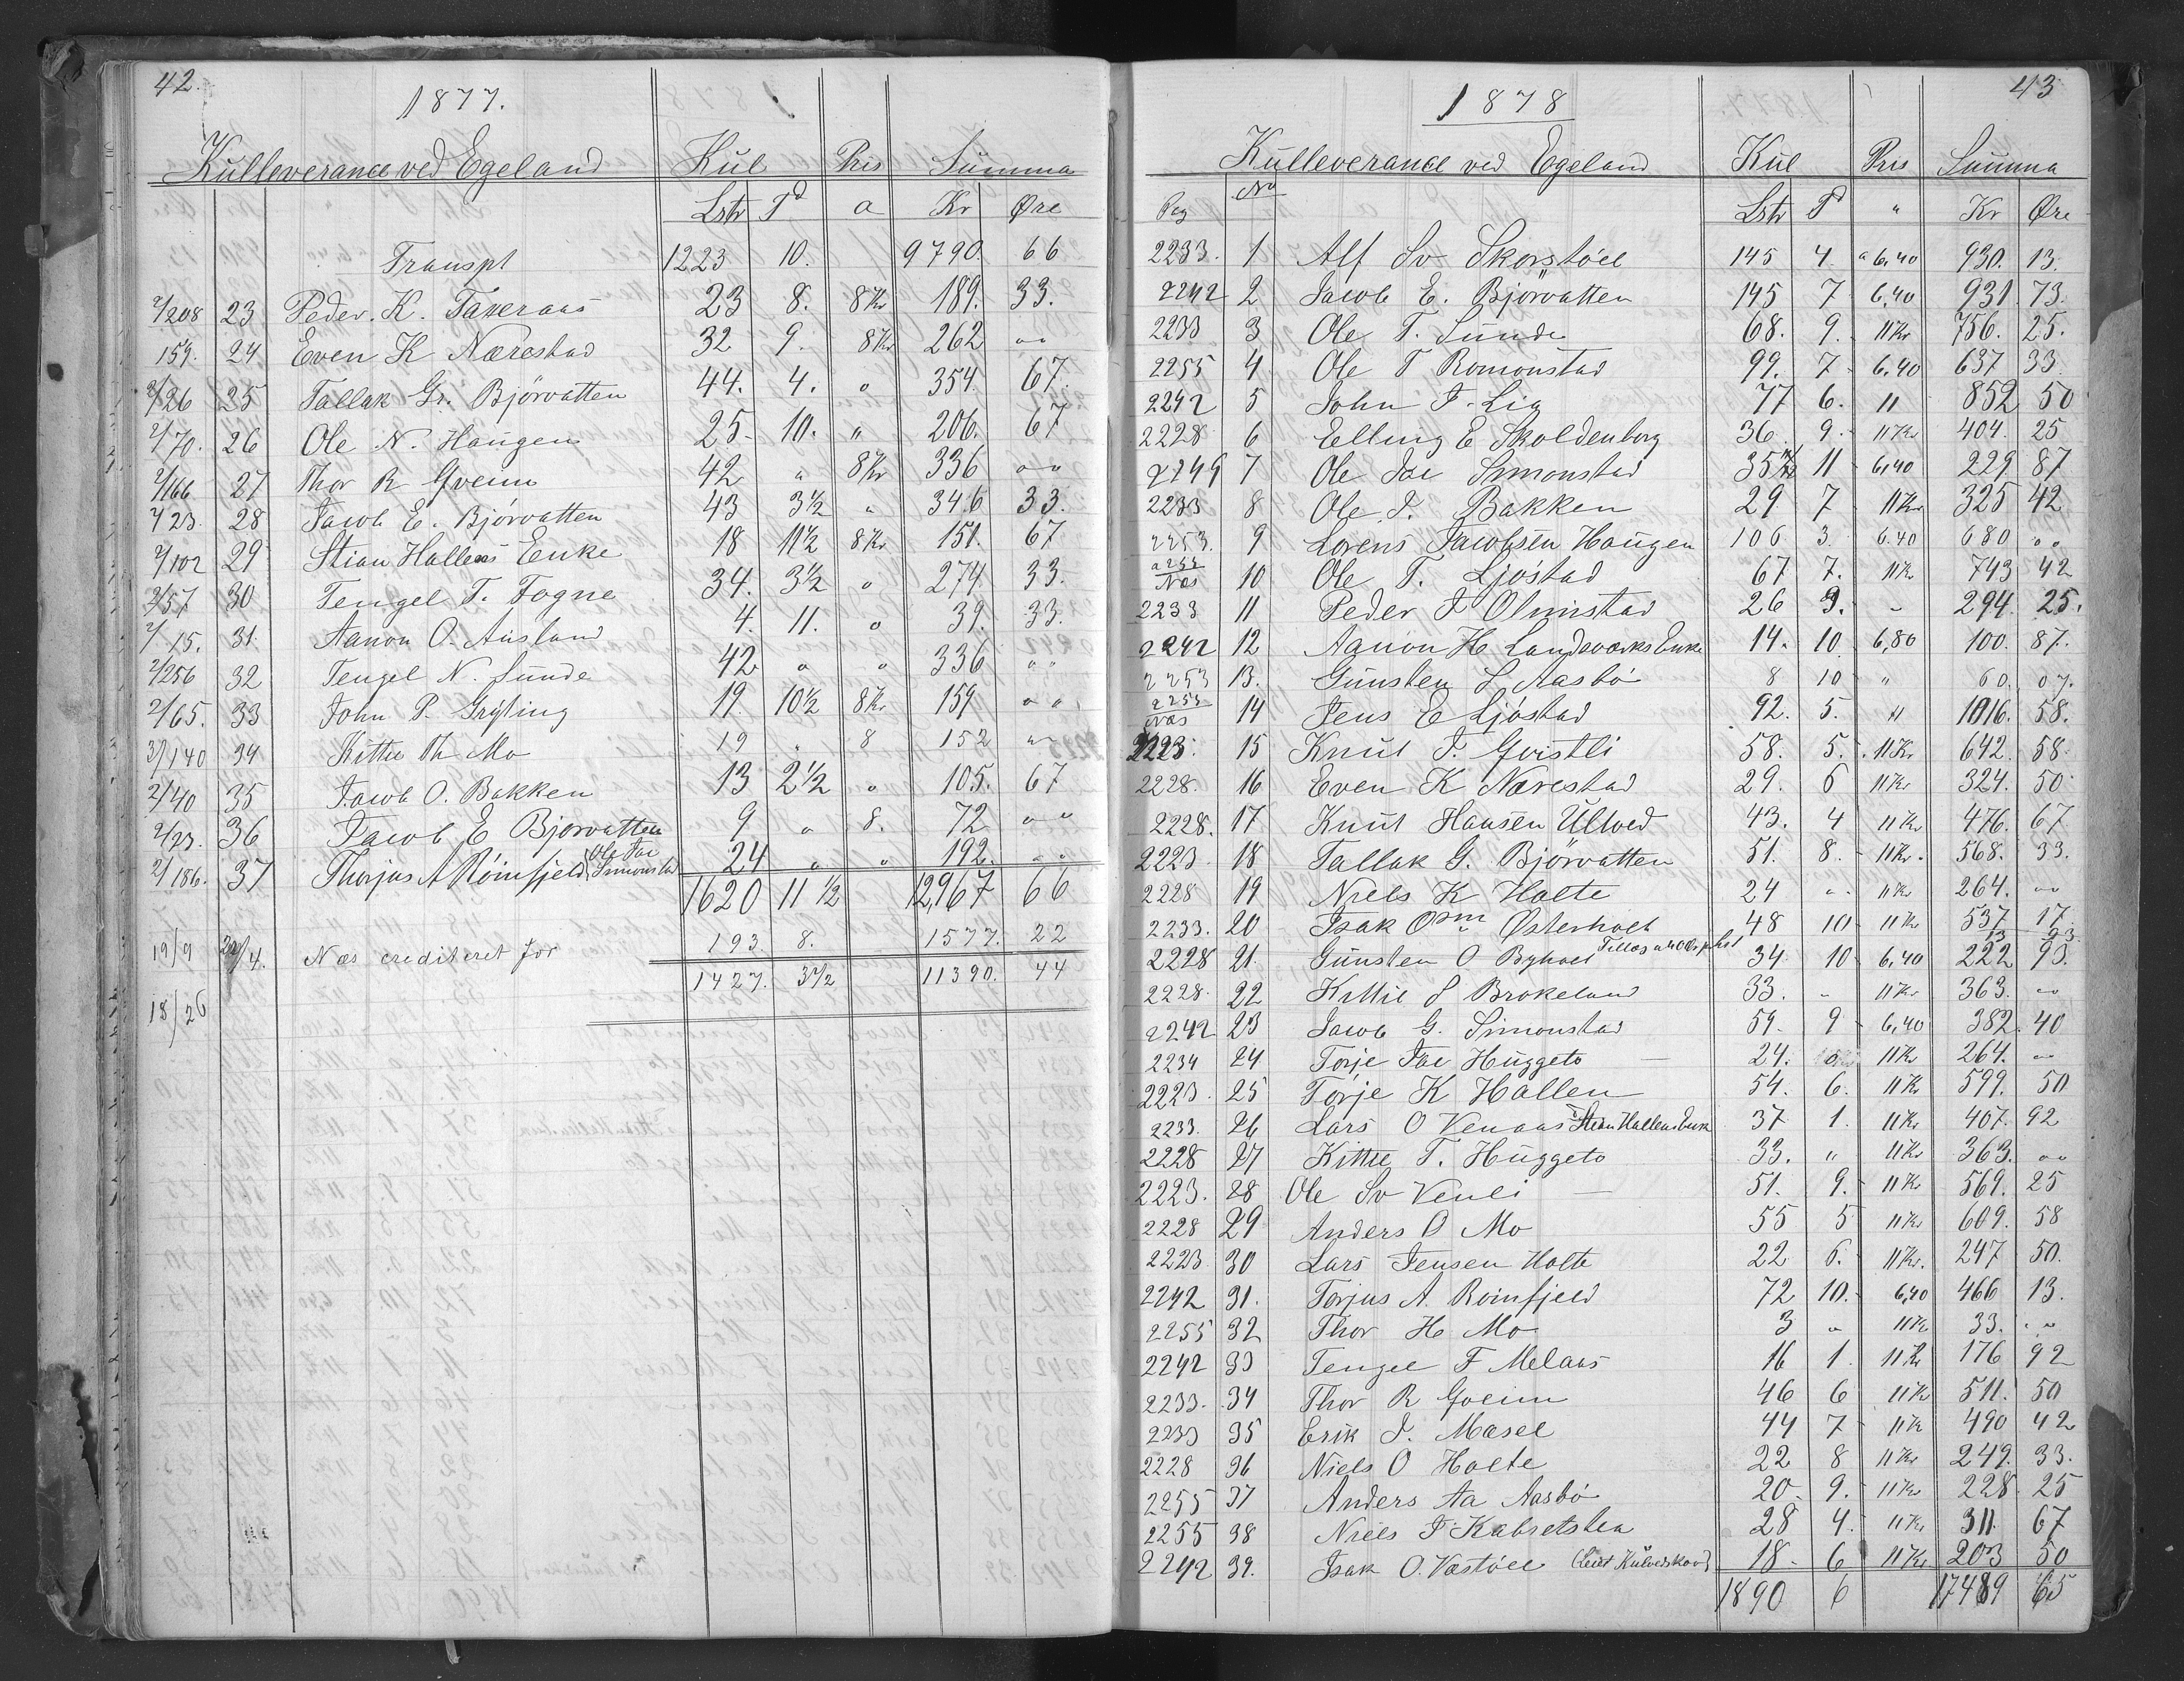 42.
1877.
Kulleverance ved Egeland Kul Pris Summa
Lstr Td a Kr Øre
Transpt 1223 10. 9790. 66
2/208 23 Peder. K. Taxeraas 23 8. 8Kr 189. 33.
159. 24 Even K Nærestad 32 9. 8Kr 262 " "
2/26 25 Tallak Gr. Bjórvatten 44. 4. " 354 67.
2/70. 26 Ole N. Haugen 25- 10. " 206. 67
2/166 27 Thor R Gveim 42 " 8Kr 336 " "
2/23. 28 Jacob E. Bjórvatten 43 3 1/2 " 346 33.
2/102 29 Stian Hallens Enke 18 11 1/2 8Kr 151. 67
2/57 30 Tengel T. Fogne 34. 3 1/2 " 274. 33.
2/15. 31. Aanon O. Ausland 4. 11. " 39. 33.
2/256 32 Tengel N. Sunde 42 " " 336 " "
2/65. 33 John P. Grýting 19. 10 1/2 8Kr. 159 " "
3/140 34 Kittil Th Mo 19 " 8 152 " "
2/40 35 Jacob O. Bakken 13 2 1/2 " 105. 67
2/23. 36 Jacob E Bjorvatten 9 " 8. 72 " "
2/186. 37 Thorjus A Róinfjeld Ole Jac Simonstad 24 " " 192. " "
1620 11 1/2 12,967 66
19/9 Næs crediteret for 193. 8. 1577. 22
1427. 3 1/2 11390. 44
18/26
43
1878
Kulleverance ved Egeland Kul Pris Summa
Pag No Lstr Td " Kr Øre
2233. 1 Alf Sv Skorstöel 145 4. a 6,40 930. 13.
2242 2 Jacob E. Björvatten 145 7 6,40 931. 73.
2233 3 Ole T. Sunde 68. 9. 11Kr 756. 25.
2255 4 Ole T Romonstad 99. 7 6,40 637 33
2242 5 John T. Lia 77 6. 11 852 50
2228 6 Elling E Skoldenborg 36. 9. 11Kr 404. 25
2249 7 Ole Jac Simonstad 35 11 6,40 229 87
2233 8 Ole J. Bakken 29 7 11Kr 325 42
2253. 9 Lorens Jacobsen Haugen 106 3. 6.40 680 " "
2255 Næs 10 Ole T. Ljóstad 67 7. 11Kr 743 42
2233 11 Peder J Olimstad 26 9. - 294. 25.
2242 12 Aanon H Landsværks Enke 14. 10 6,80 100. 87.
2253 13. Gunsten L Aasbó 8 10 " 60. 07.
2255 Næs 14 Jens E Ljóstad 92. 5. 11 1016. 58.
2223. 15 Knut J. Gvistli 58. 5. 11Kr. 642. 58.
2228. 16 Even K Nærestad 29. 6 11Kr 324. 50
2228. 17 Knut Hansen Ulved 43. 4 11Kr 476. 67
2223 18 Tallak G. Björvatten 51. 8. 11Kr. 568. 33.
2228 19 Niels K Holte 24 " 11Kr 264. " "
2233. 20 Isak Osm Østerholt 48 10 11Kr 537 17
13 93.
2228 21. Gunsten O Byholt Tillæg a 40 Ør pr Lst 34 10 6,40 222 93.
2228. 22 Kittil S Brokeland 33. - 11Kr 363. " "
2242 23 Jacob G. Simonstad 59. 9 6,40 382. 40
2234 24 Torje Jac Huggeto 24. 11Kr 264. " "
2223. 25 Torje K Hallen 54. 6. 11Kr 599. 50
2233. 26 Lars O Venaas Stian Hallens Enke 37 1. 11Kr 407. 92
2228 27 Kittil T. Huggeto 33. " 11Kr 363. " "
2223. 28 Ole Sv Venli 51. 9. 11Kr 569. 25
2228 29 Anders O Mo 55 5 11Kr 609. 58
2223. 30 Lars Jensen Holte 22 6. 11Kr. 247 50.
2242 31. Torjus A. Roinfjeld 72 10. 6,40 466 13.
2255 32 Thor H Mo 3 " 11Kr 33. " "
2242 33 Tengel F Melaas 16 1. 11Kr 176 92
2233. 34 Thor R Gveim 46 6 11Kr 511. 50
2233 35 Erik J. Masel 44 7 11Kr 490 42
2228 36 Niels O Holte 22 8 11Kr 249. 33.
2255 37 Anders Aa Aasbó 20. 9. 11Kr 228. 25
2255 38 Niels J. Kabretslia 28 4. 11Kr. 311. 67
2242 39. Isak O. Vastóel 18- 6 11Kr. 203 50
1890 6 17489 65